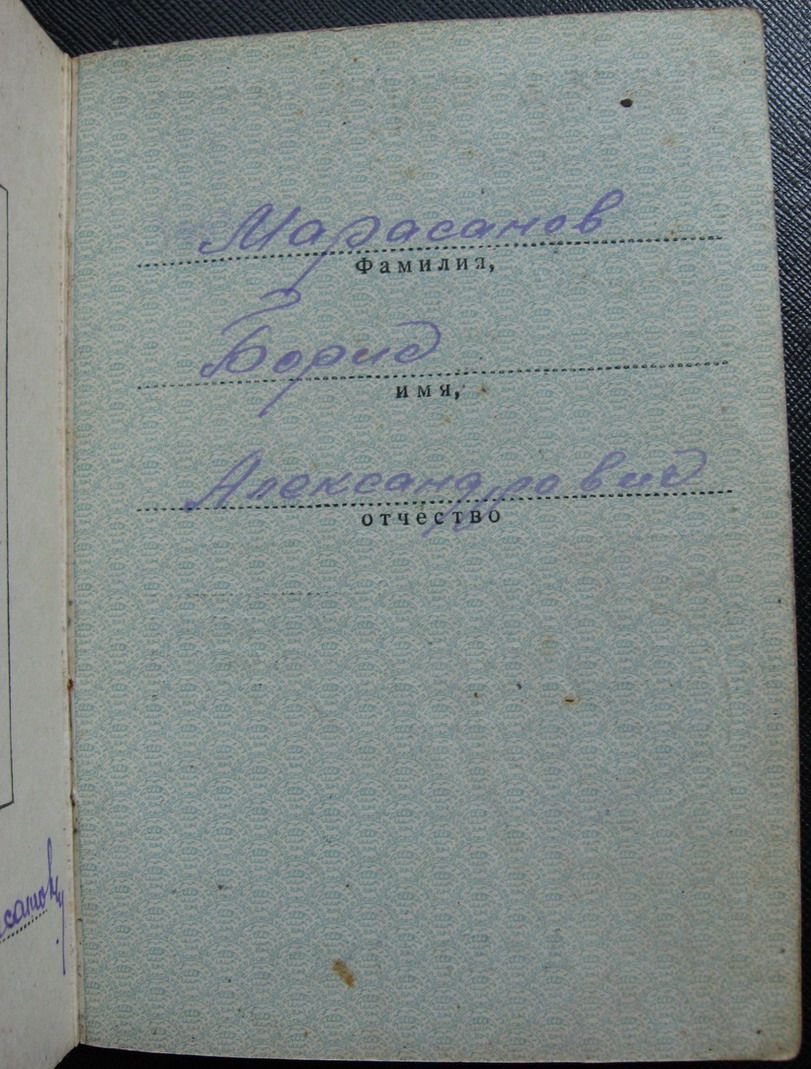 Марасанов
Фамилия,
Борис
имя,
Александрович
отчество